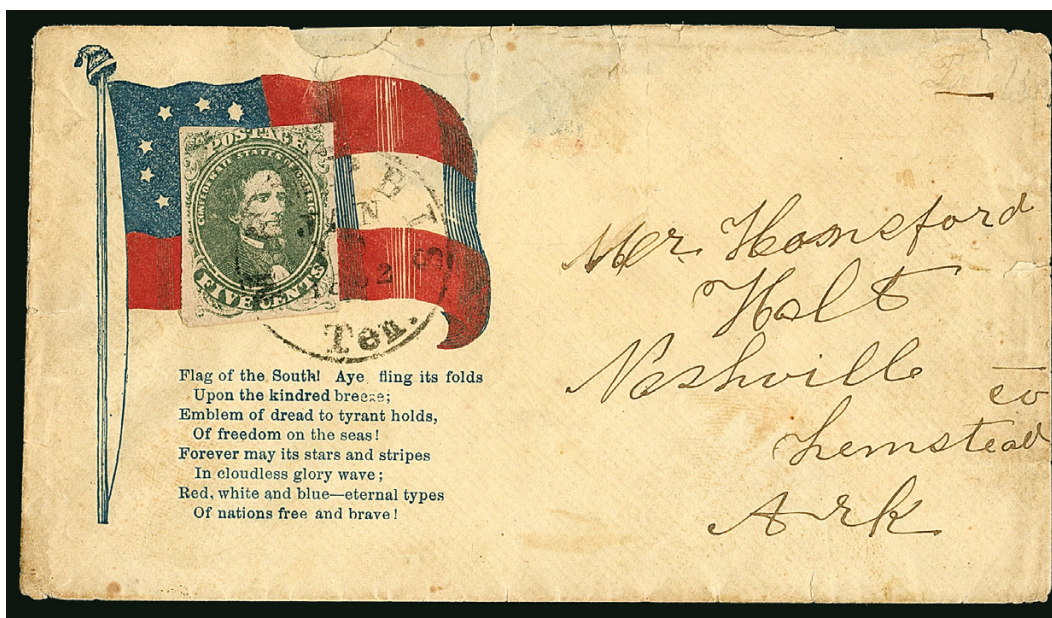 POSTAGE
CONFEDERATE STATES OF AMERICA
FIVE CENTS
JAN
Ten.
Flag of the South! Aye fling its folds
Upon the kindred breeze;
Emblem of dread to tyrant holds,
Of freedom on the seas!
Forever may its stars and stripes
In cloudless glory wave;
Red, white and blue—eternal types
Of nations free and brave!
Mr. Hansford
Holt
Nashville
co
Hemstead
Ark